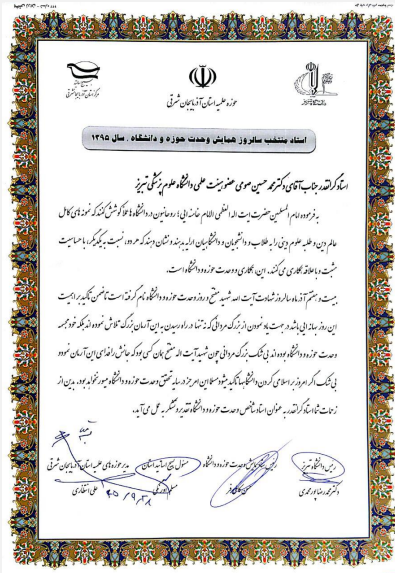 حوزه علمیه استان آذربایجان شرقی
استاد منتخب سالروز همایش وحدت حوزه و دانشگاه . سال ۱۳۹۵
استاد گرانقدر جناب آقای دکتر محمد حسین صومی عضو هیئت علمی دانشگاه علوم پزشکی تبریز
به فرموده امام المسلمین حضرت آیت اله العظمی الامام خامنه ایی؛ روحانیون در دانشگاه ها کوشش کنند که نمونه های کامل
عالم دین و طلبه علوم دینی را به طلاب و دانشجویان و دانشگاهیان ارایه بدهند و نشان دهند که هر دو، نسبت به یکدیگر، با حساسیت
مثبت و با علاقه همکاری می کنند. این، همکاری و وحدت حوزه و دانشگاه است.
بیست و هفتم آذرماه سالروز شهادت آیت اله شهید مفتح در روز وحدت حوزه و دانشگاه نام گرفته است تا ضمن تاکید بر اهمیت
این روز بهانه ایی باشد در جهت یاد نمودن از بزرگ مردانی که نه تنها در راه رسیدن به این آرمان بزرگ تلاش نموده اند بلکه خود مجسمه
وحدت حوزه و دانشگاه بوده اند بی شک بزرگ مردانی چون شهید آیت اله مفتح همان کسی بود که جانش را فدای این آرمان نمود و
بی شک اگر امروز بر اسلامی کردن دانشگاهها تاکید میشود مسلما این امر جز در سایه تحقق وحدت حوزه و دانشگاه میسر نخواهد بود. بدین از
زحمات شما استاد گرانقدر به عنوان استاد شاخص وحدت حوزه و دانشگاه تقدیر و تشکر به عمل می آید.
رئیس دانشگاه تبریز
دکتر محمدرضا پورمحمدی
رئیس ستاد همایش وحدت حوزه و دانشگاه
مسئول بسیج اساتید استان
مدیر حوزه های علمیه استان آذربایجان شرقی
علی انتظاری
۹۵/۹/۲۸